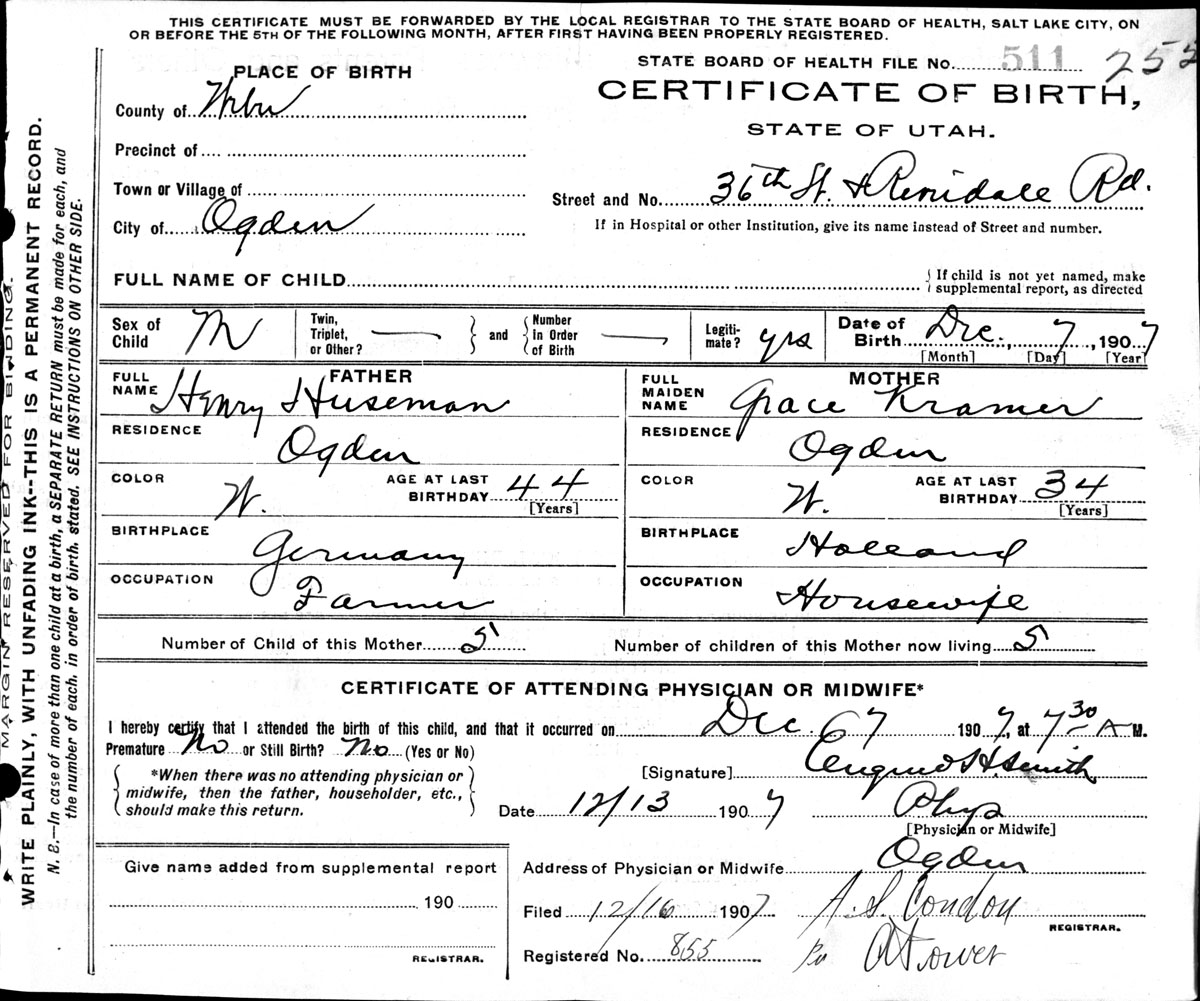 THIS CERTIFICATE MUST BE FORWARDED BY THE LOCAL REGISTRAR TO THE STATE BOARD OF HEALTH, SALT LAKE CITY, ON
OR BEFORE THE 5TH OF THE FOLLOWING MONTH, AFTER FIRST HAVING BEEN PROPERLY REGISTERED.
STATE BOARD OF HEALTH FILE No. 511 252
PLACE OF BIRTH
CERTIFICATE OF BIRTH,
STATE OF UTAH.
County of Weber
Precinct of
Town or Village of
City of Ogden
Street and No. 36th St. & Rd.
If in Hospital or other Institution, give its name instead of Street and number.
FULL NAME OF CHILD
If child is not yet named, make
supplemental report, as directed
Sex of Child M
Twin, Triplet, or Other? —
and
Number in Order of Birth —
Legiti-mate? yes
Date of Birth Dec. 7, 1907
[Month] [Day] [Year]
FATHER
FULL NAME Henry Huseman
RESIDENCE Ogden
COLOR W.
AGE AT LAST BIRTHDAY 44
[Years]
BIRTHPLACE Germany
OCCUPATION Farmer
MOTHER
FULL MAIDEN NAME Grace Kramer
RESIDENCE Ogden
COLOR W.
AGE AT LAST BIRTHDAY 34
[Years]
BIRTHPLACE Holland
OCCUPATION Housewife
Number of Child of this Mother 5
Number of children of this Mother now living 5
CERTIFICATE OF ATTENDING PHYSICIAN OR MIDWIFE*
I hereby certify that I attended the birth of this child, and that it occurred on Dec. 7 1907, at 7 30 A M.
Premature No or Still Birth? No (Yes or No)
*When there was no attending physician or
midwife, then the father, householder, etc.,
should make this return.
[Signature] H. Smith
Date 12/13 1907 Phys
[Physician or Midwife]
Address of Physician or Midwife Ogden
Give name added from supplemental report
190
REGISTRAR.
Filed 12/16 1907 A. S. Condon
REGISTRAR.
Registered No. 855
MARGIN RESERVED FOR BINDING.
WRITE PLAINLY, WITH UNFADING INK--THIS IS A PERMANENT RECORD.
N. B.—In case of more than one child at a birth, a SEPARATE RETURN must be made for each, and
the number of each, in order of birth, stated. SEE INSTRUCTIONS ON OTHER SIDE.